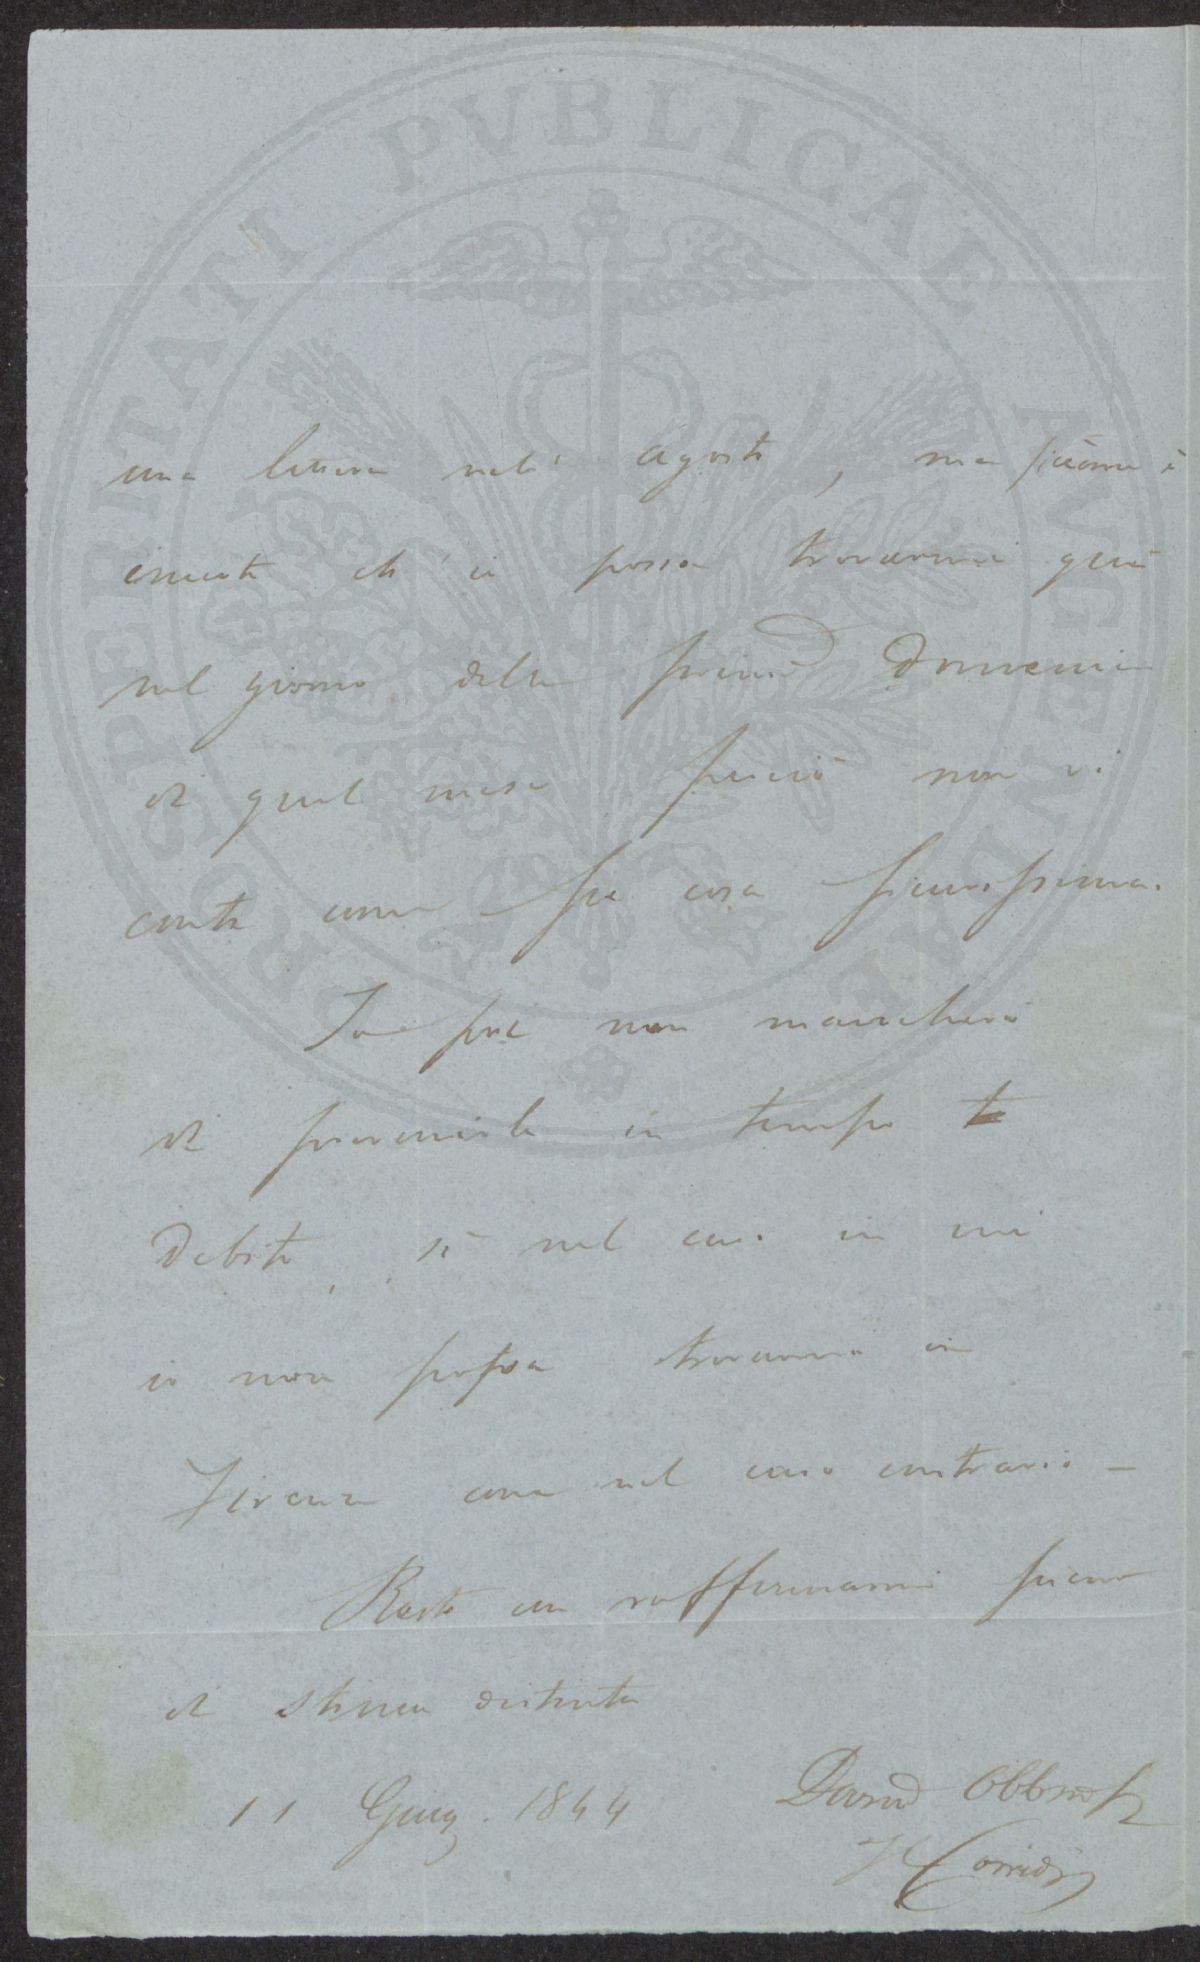 PROSPERITATI PVBLICAE AVGENDAE
una lettura nell' Agosto, ma siccome è
incerto ch' io possa trovarmi quà
nel giorno della prima Domenica
di quel mese perciò non vi
conti come su cosa sicurissima.
Io poi non mancherò
di prevenirla in tempo
debito, sì nel caso in cui
io non possa trovarmi in
Firenze come nel caso contrario —
Resto con raffermarmi pieno
di stima distinta
11 Giug. 1844 Obbmo
F Corridi